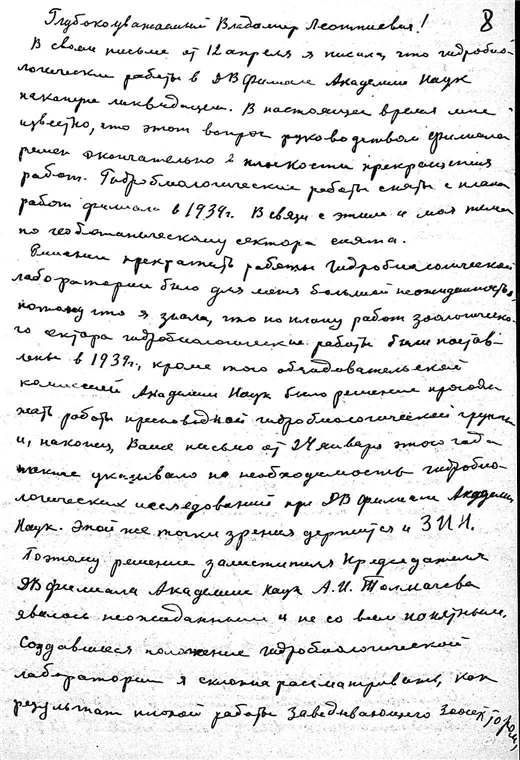 8
Глубокоуважаемый Владимир Леонтиевич!
В своем письме от 12 апреля я писала, что гидробио-
логические работы в ДВ филиале Академии Наук
накануне ликвидации. В настоящее время мне
известно, что этот вопрос руководством филиала
решен окончательно в плоскости прекращения
работ. Гидробиологические работы сняты с плана
работ филиала в 1939г. В связи с этим и моя тема
по геоботаническому сектора снята.
Решение прекратить работы гидробиологической
лаборатории было для меня большой неожиданностью,
потому что я знала, что по плану работ зоологическо-
го сектора гидробиологические работы были постав-
лены в 1939г., кроме того обследовательской
комиссией Академии Наук было решение продол
жать работы пресноводной гидробиологической группы
и, наконец, Ваше письмо от 24 января этого года
также указывало на необходимость гидробио-
логических исследований при ДВ филиале Академии
Наук. Этой же точки зрения держится и ЗИН.
Поэтому решение заместителя председателя
ДВ филиала Академии Наук А.И. Толмачева
явилось неожиданным и не со всем понятным.
Создавшееся положение гидробиологической
лаборатории я склонна рассматривать, как
результат плохой работы заведывающего зоосектором,